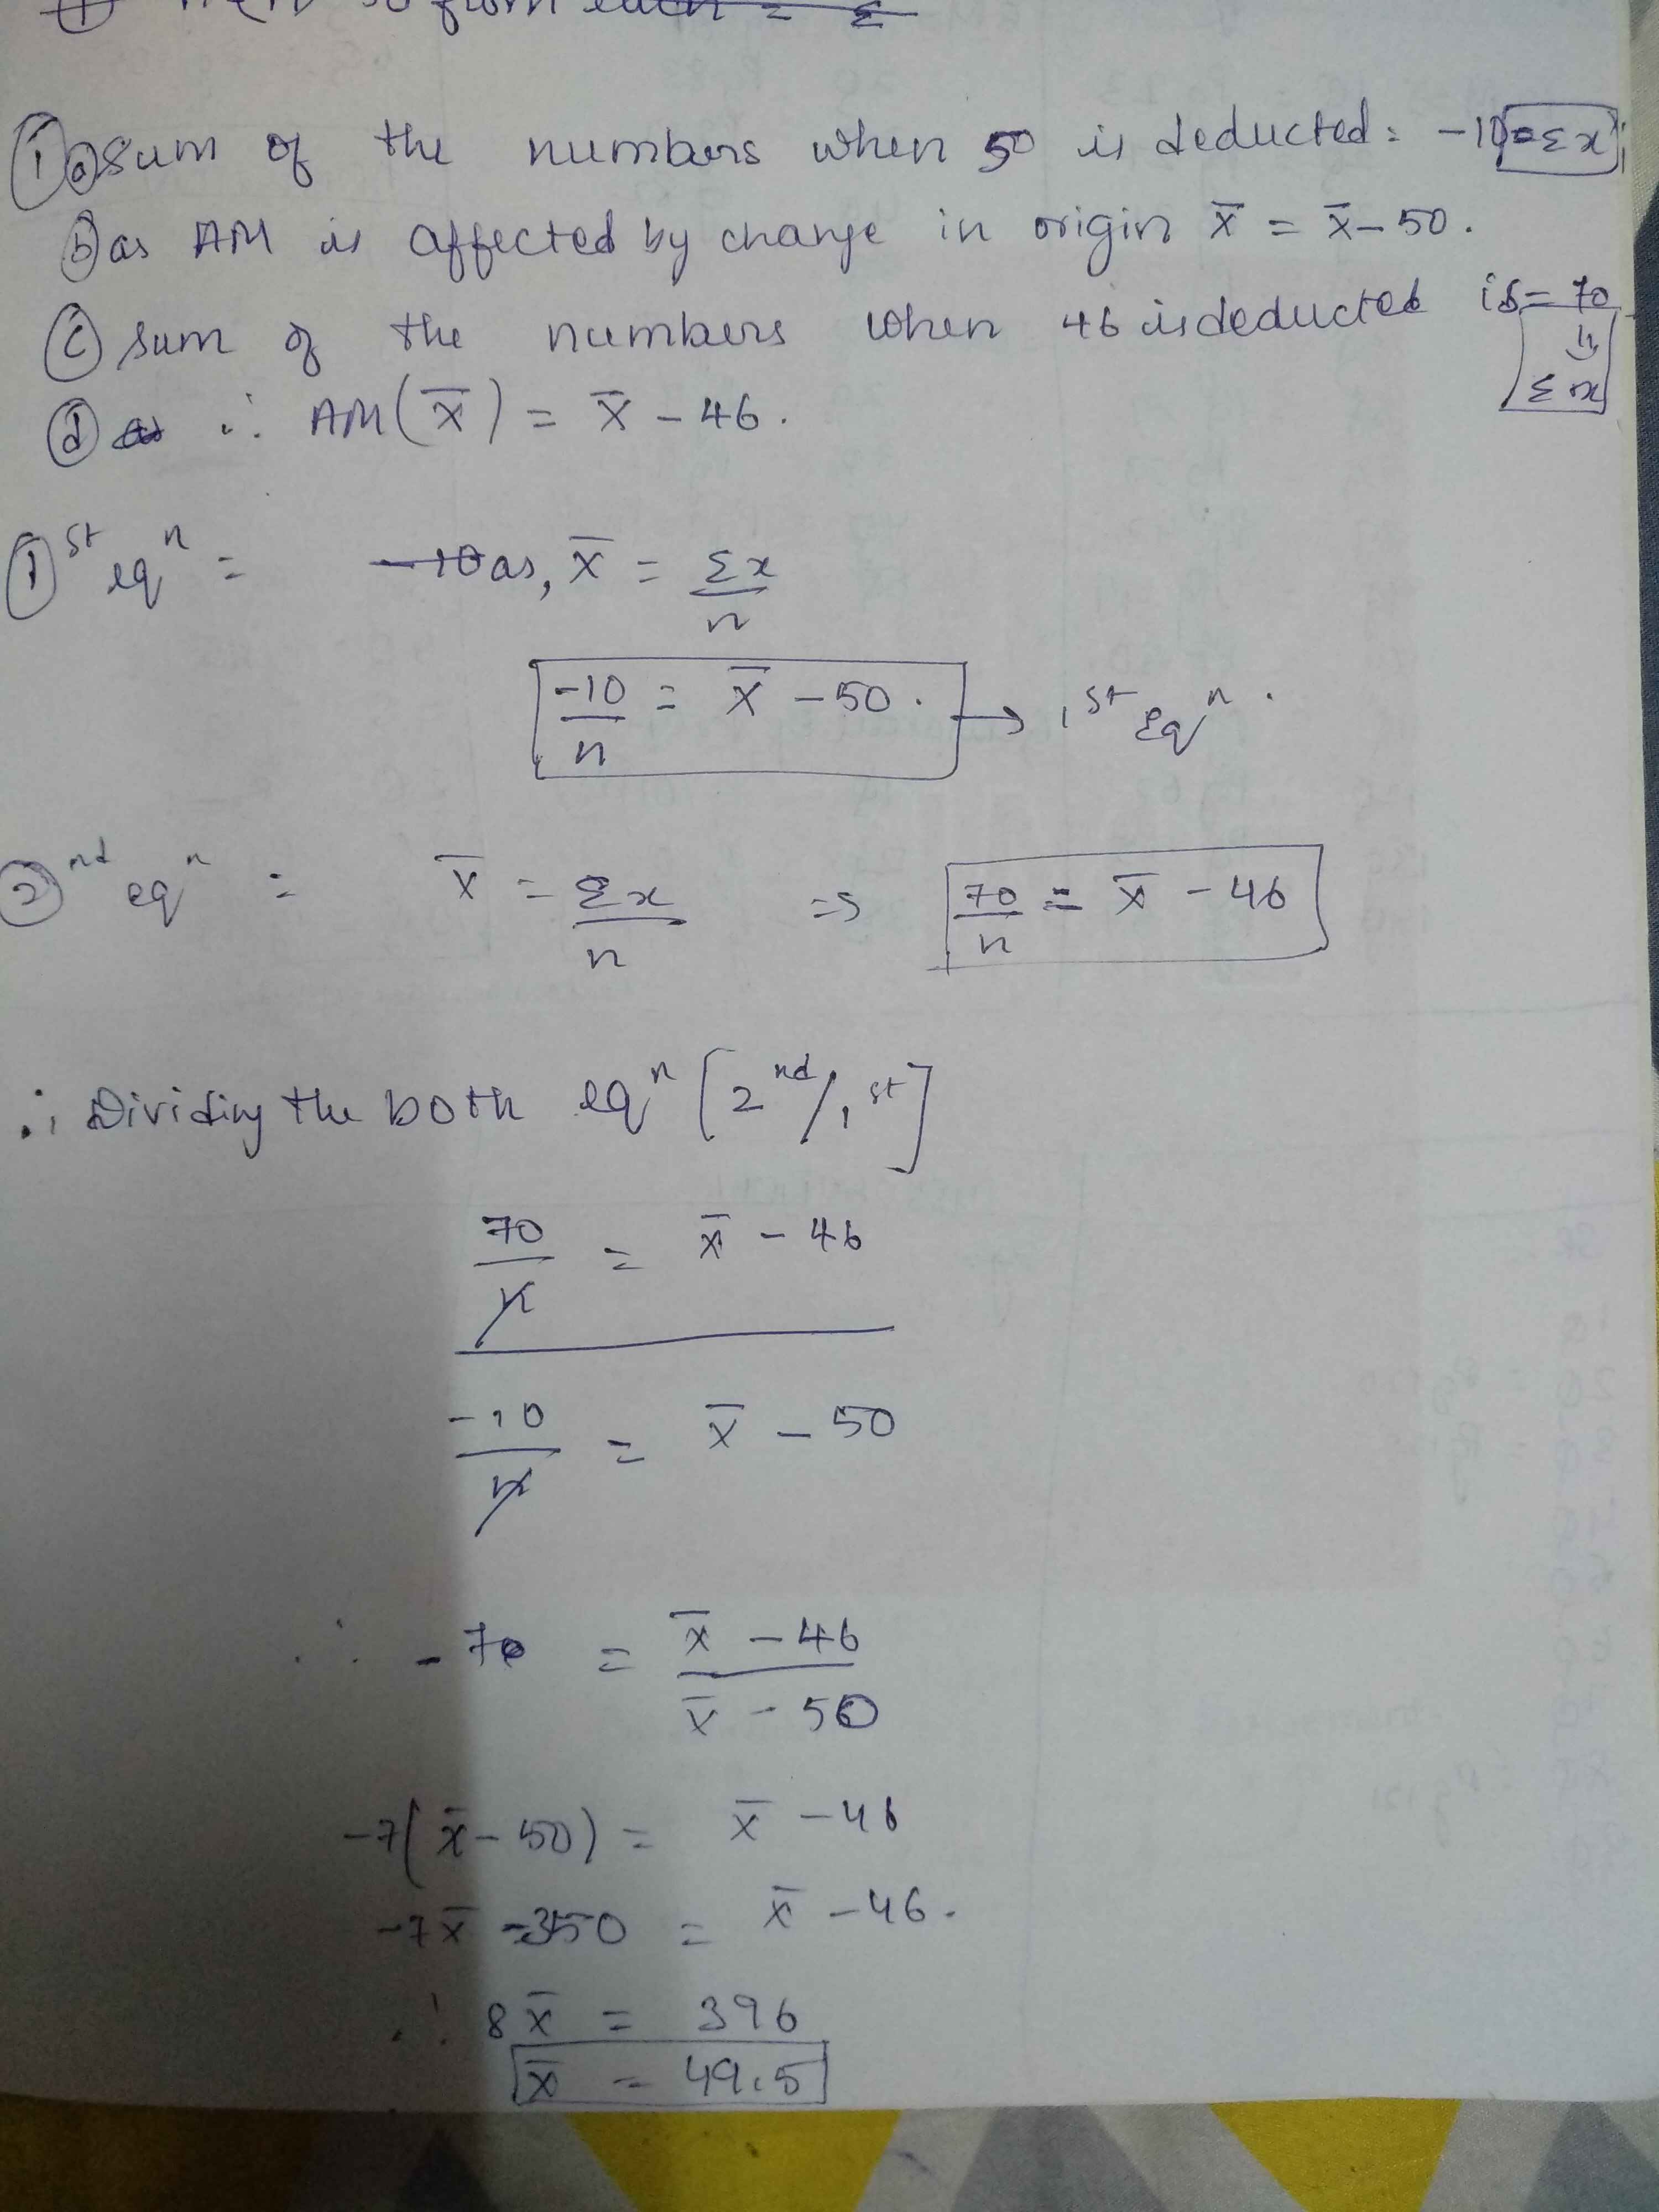 50 from each = Σ
① ⓐ Sum of the numbers when 50 is deducted = -10 = Σx
ⓑ as AM is affected by change in origin x̄ = x̄ - 50.
ⓒ sum of the numbers when 46 is deducted is = 70 = Σx
ⓓ as ∴ AM (x̄) = x̄ - 46.
① st eqⁿ = -10 as, x̄ = Σx/n
-10/n = x̄ - 50. → 1st Eqⁿ.
② nd eqⁿ = x̄ = Σx/n ⇒ 70/n = x̄ - 46
∴ Dividing the both eqⁿ [2nd/1st]
70/n = x̄ - 46
-10/n = x̄ - 50
∴ -7 = x̄ - 46 / x̄ - 50
-7(x̄ - 50) = x̄ - 46
-7x̄ -350 = x̄ - 46.
∴ 8x̄ = 396
x̄ = 49.5